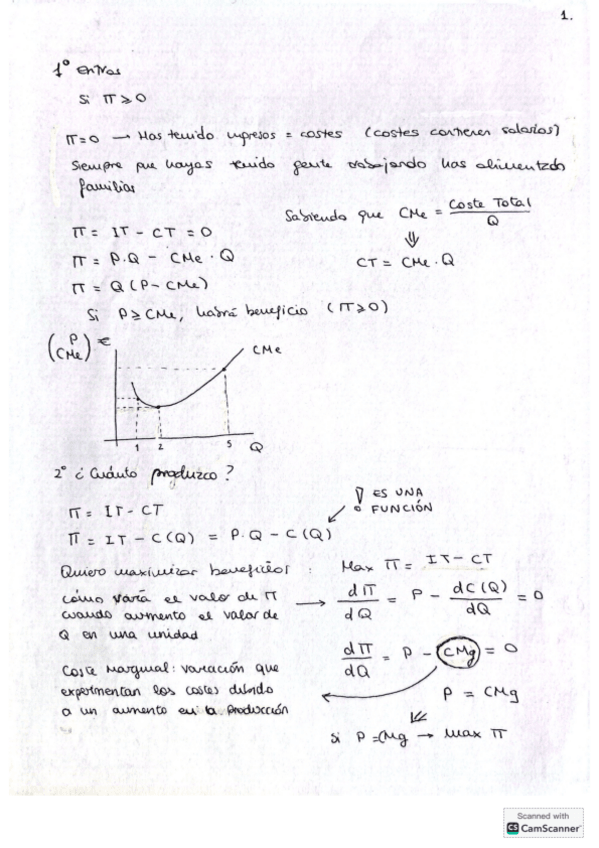 1.
1º entras
Si π ⩾ 0
π=0 → Has tenido ingresos = costes (costes contienen salarios)
Siempre que hayas tenido gente trabajando has alimentado
familias
Sabiendo que CMe = Coste Total / Q
π = IT - CT = 0
⇓
π = P.Q - CMe . Q
CT = CMe . Q
π = Q (P - CMe)
Si P ⩾ CMe, habrá beneficio (π ⩾ 0)
(P CMe) €
CMe
1 2 5 Q
2º ¿Cuánto produzco?
π = IT - CT
ES UNA
FUNCIÓN
π = IT - C(Q) = P.Q - C(Q)
Quiero maximizar beneficios : Max π = IT - CT
cómo varía el valor de π
cuando aumento el valor de
Q en una unidad
→ dπ / dQ = P - dC(Q) / dQ = 0
dπ / dQ = P - CMg = 0
Coste Marginal: variación que
experimentan los costes debido
a un aumento en la producción
P = CMg
⇓
si P = CMg → Max π
Scanned with
CS CamScanner